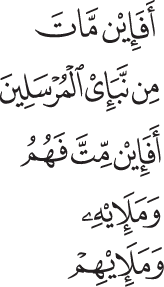 أَفَإِيْن مَّاتَ
مِن نَّبَإِىْ ٱلْمُرْسَلِينَ
أَفَإِيْن مِّتَّ فَهُمُ
وَمَلَإِيْهِۦ
وَمَلَإِيْهِمْ